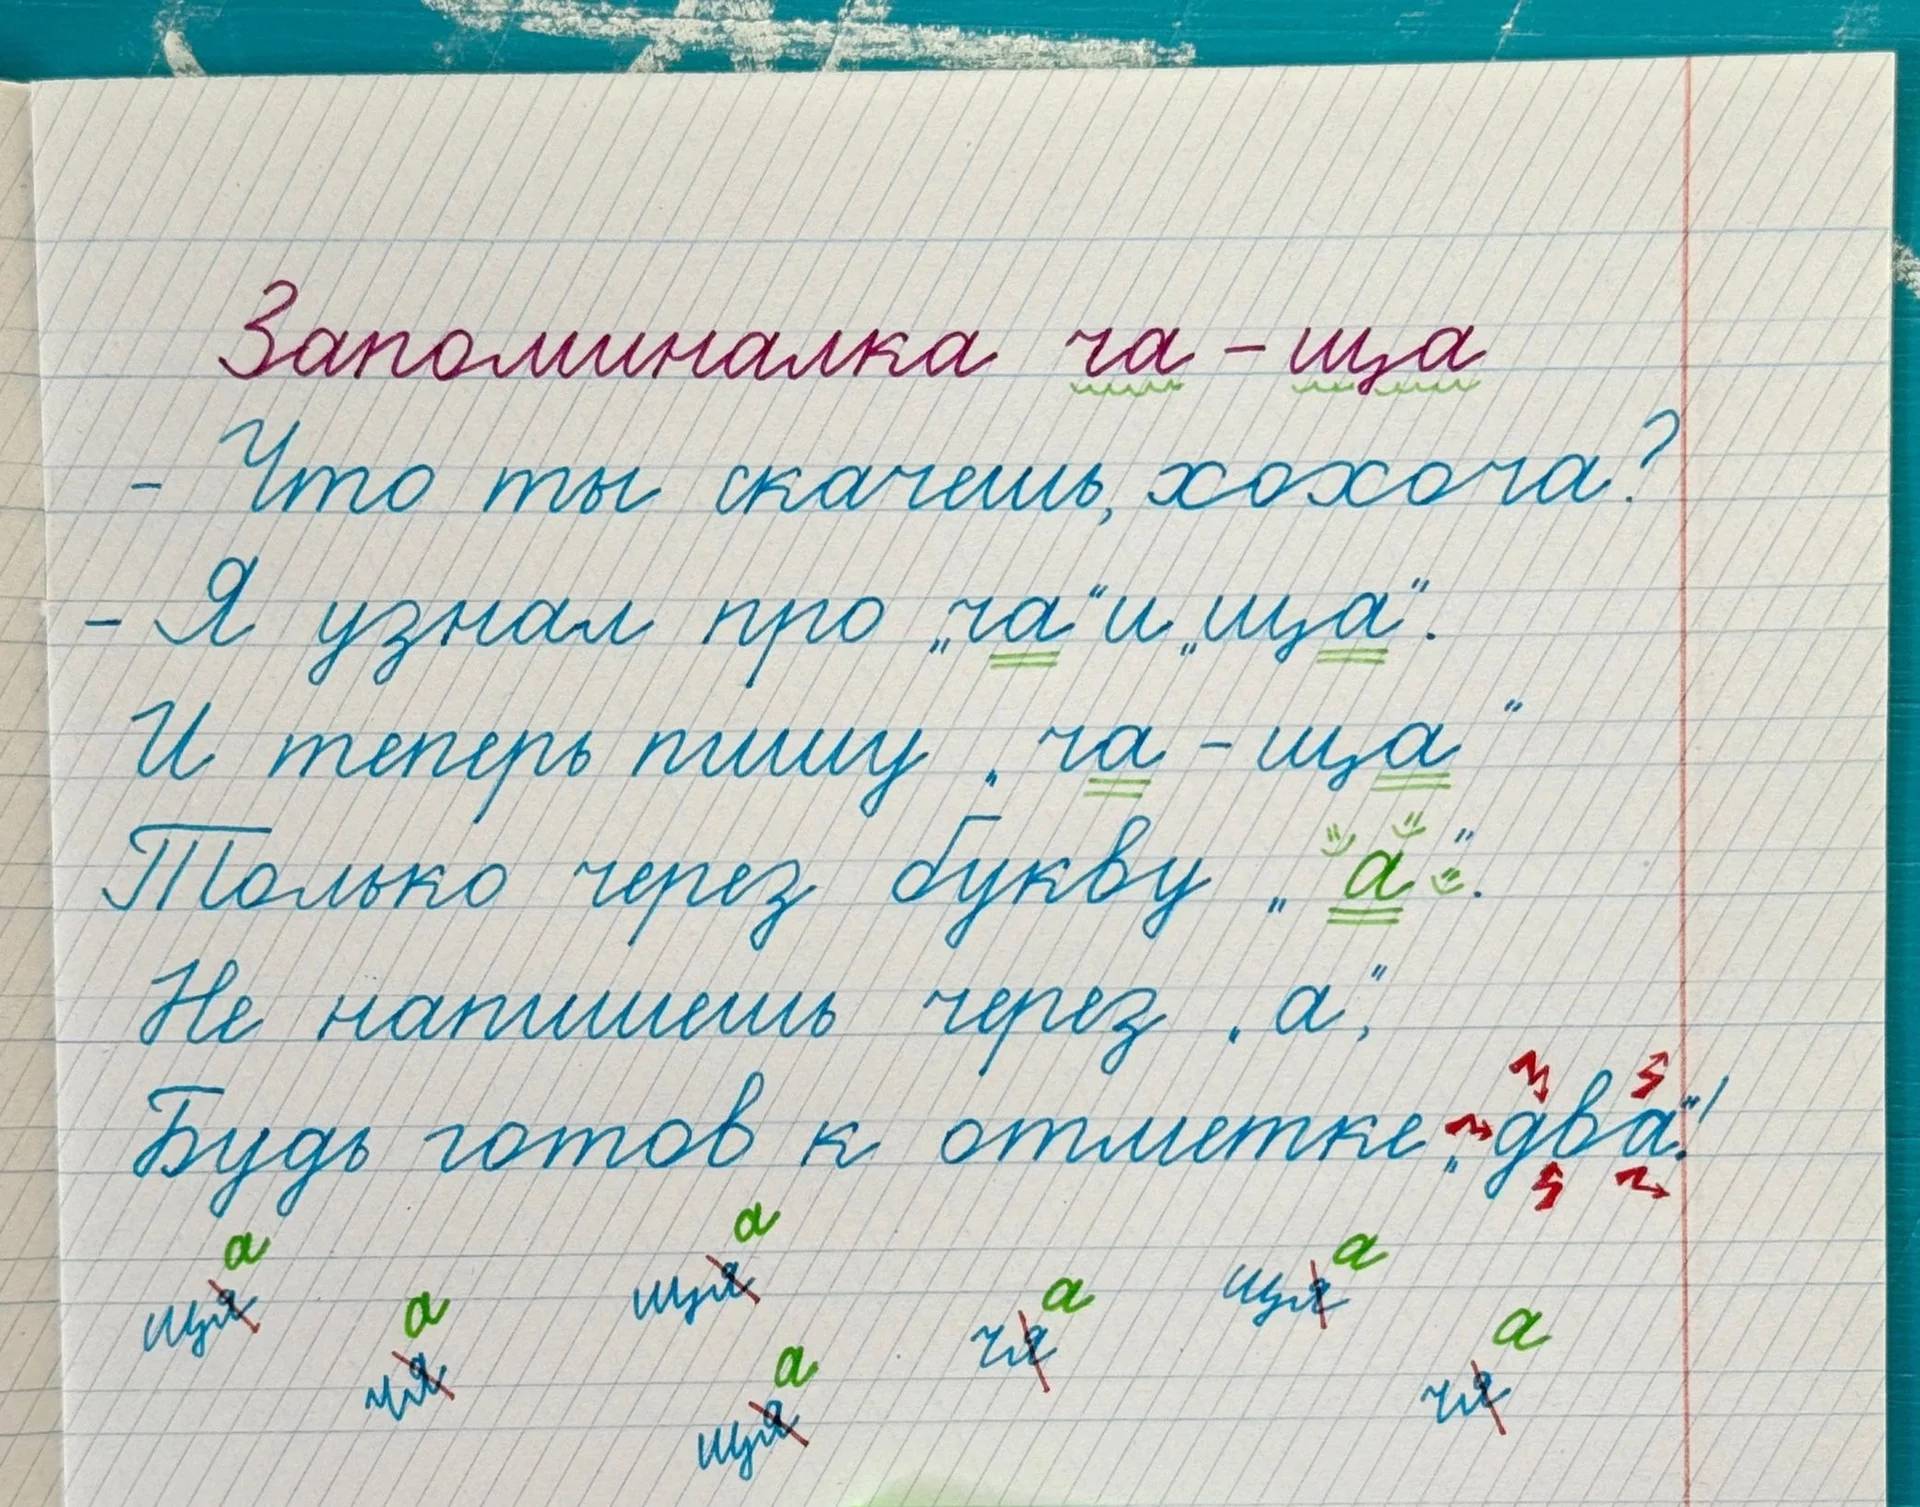 Запоминалка ча - ща
- Что ты скачешь, хохоча?
- Я узнал про „ча“ и „ща“.
И теперь пишу „ча - ща“
Только через букву „а“.
Не напишешь через „а“,
Будь готов к отметке „два“!
а а а а
щя щя чя щя
а а а
чя щя чя